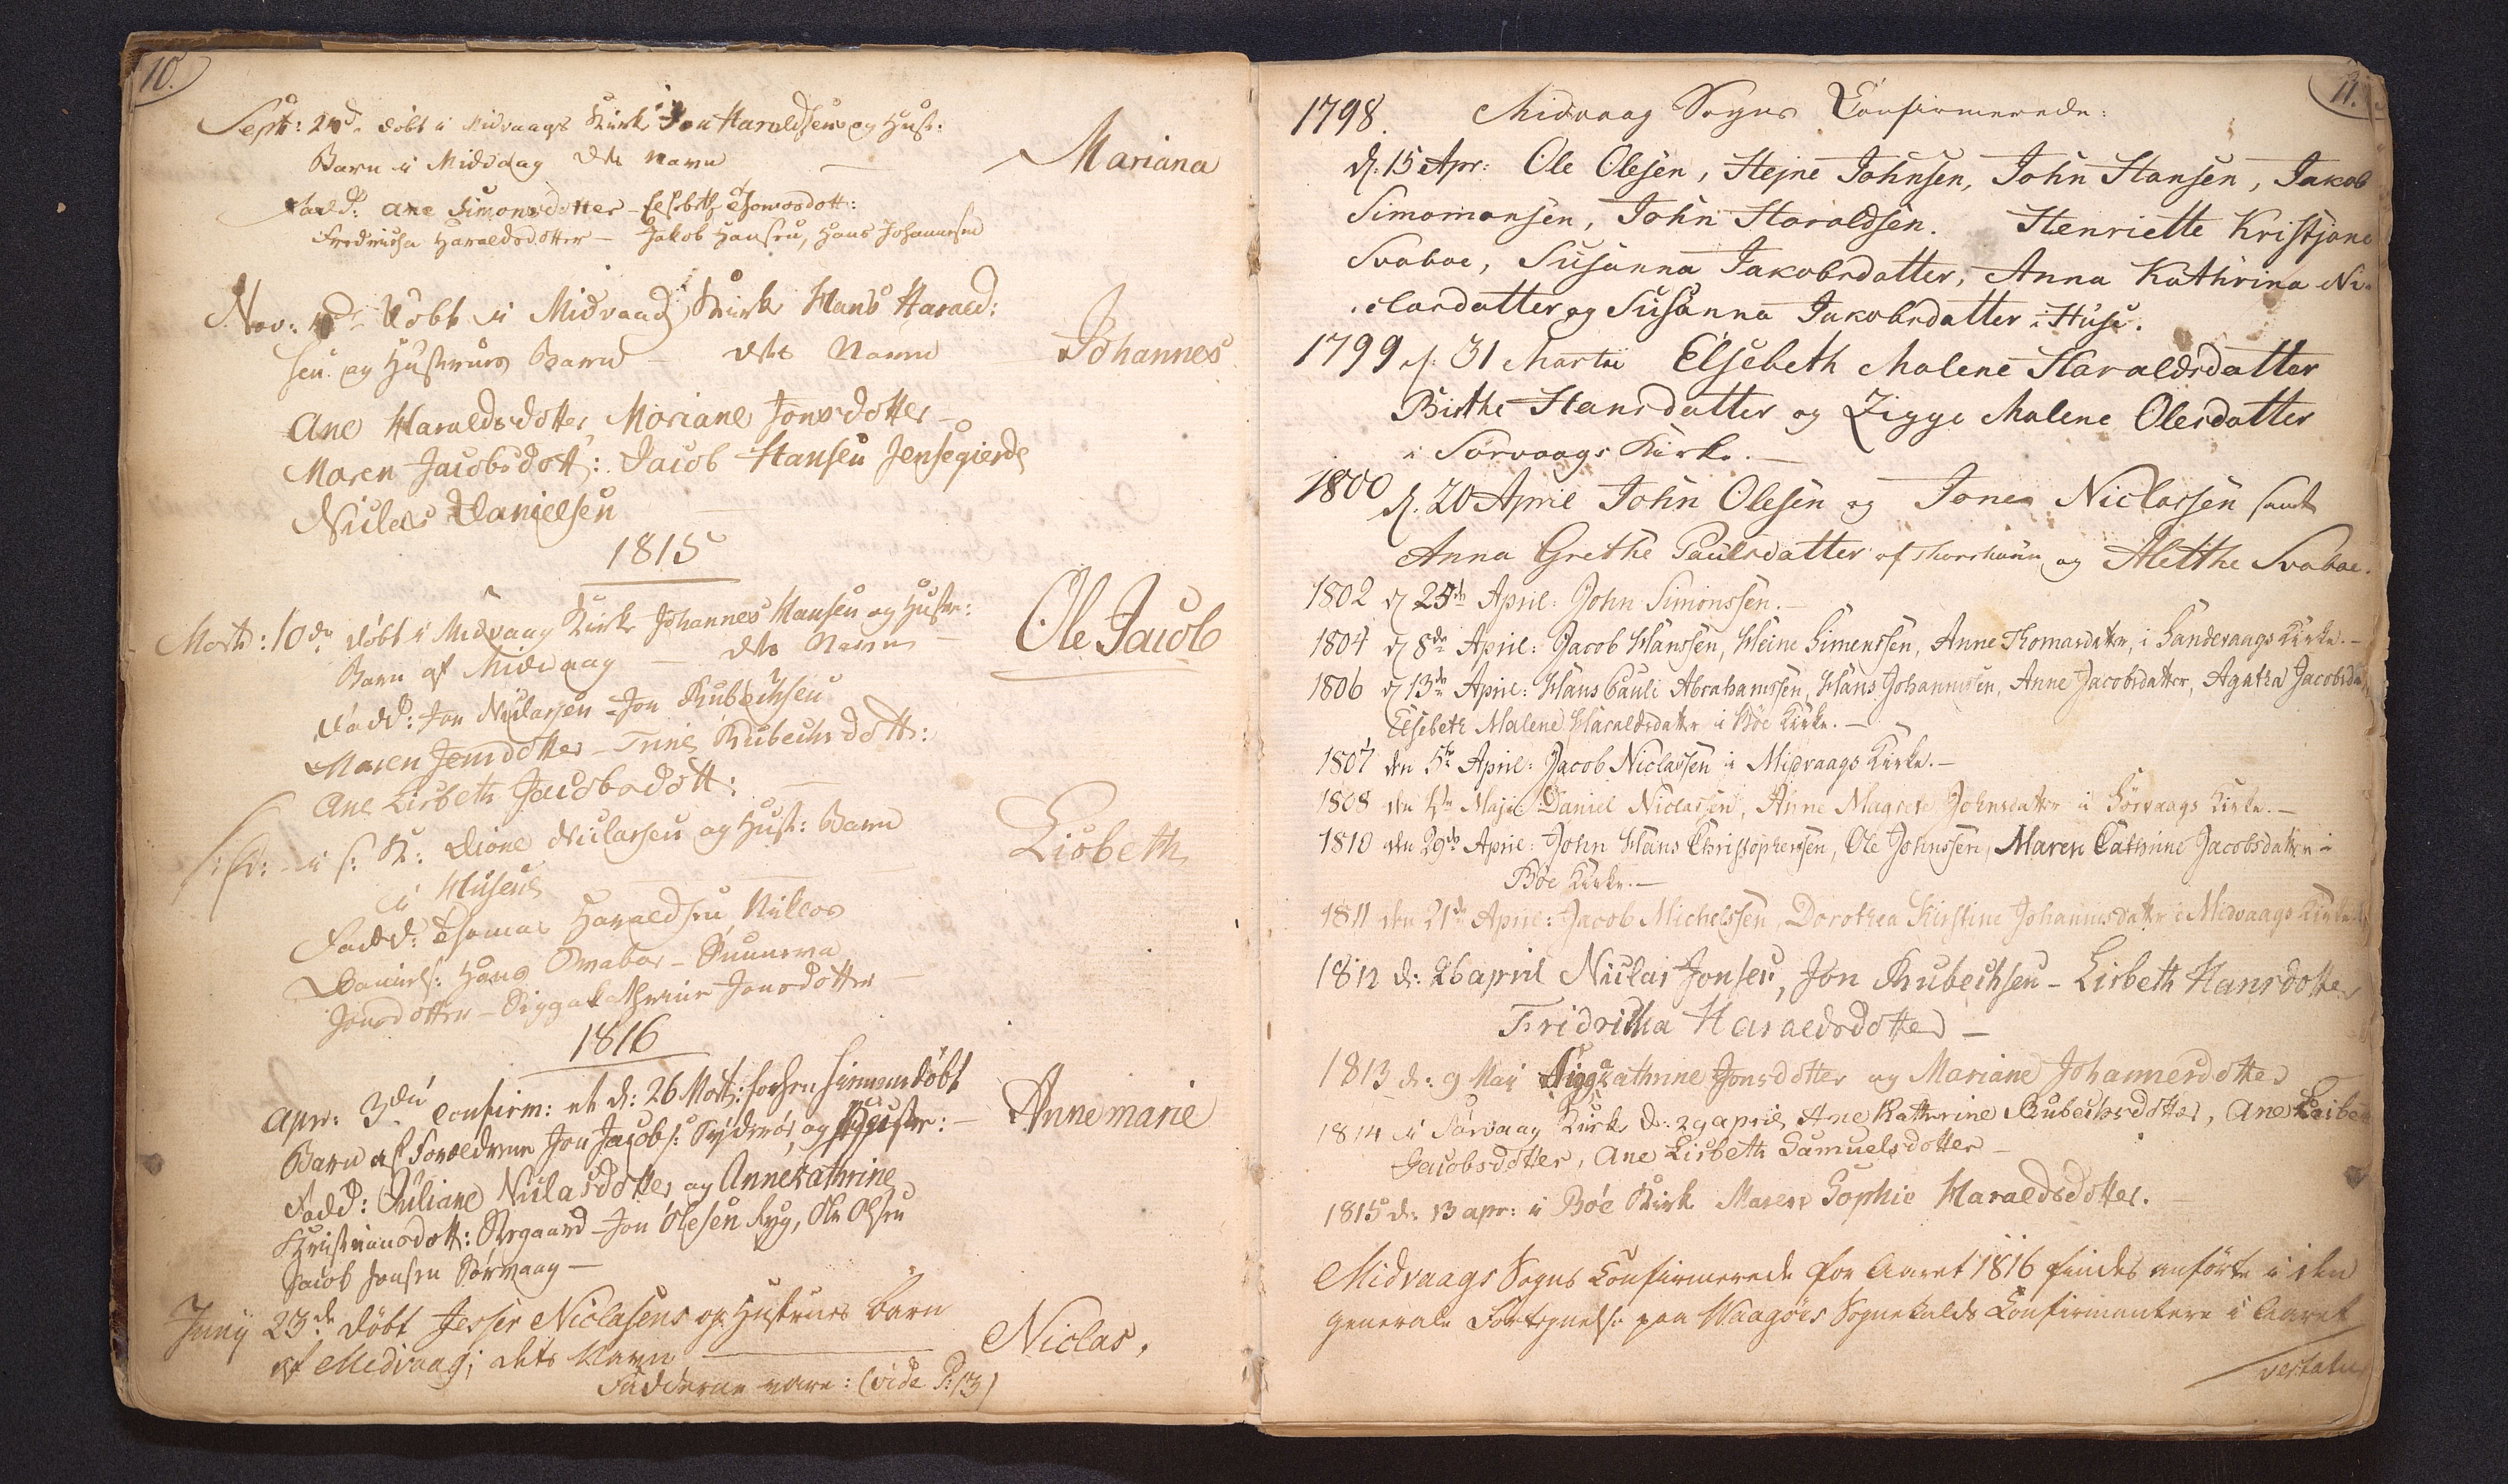 10.
Sept: døbt i Midvaags Kirke Jon Haraldsens og Hustr:
Barn i Midvaag dets Navn — Mariana
Fadd: Ane Simonsdotter — Elsebeth Thomasdott:
Fredricha Haraldsdotter — Jakob Hansen, Hans Johannesen
Nov: døbt i Midvaags Kirke Hans Harald:
sen og Hustrues Barn — dets Navn Johannes
Ane Haraldsdotter Mariane Jonsdotter —
Maren Jacobsdott: Jacob Hansen
Niclas Danielsen
1815
Marts: 10de døbt i Midvaag Kirke Johannes Hansen og Hustr:
Barn af Midvaag — dets Navn — Ole Jacob
Fadd: Jon Niclasen — Jon Rubechsen
Maren Jensdotter — Trine Rubechsdott:
Ane Lisbeth Jacobsdott:
i s: K: Niclasen og Hustr: Barn Lisbeth
i Husene
Fadd: Thomas Haraldsen Niklas
Daniels: Hans Svaboe — Sunneva
Jonsdotter — Siggakathrine Jonsdotter
1816
Apr: 3die Confirm: et d: 26 Mart: døbt
Barn af Forældrene Jon Jacobs: Syderøe, og Hustr: — Annemarie
Fadd: Juliane Niclasdotter og Annekathrine
Kristiansdott: — Jon Olesen Ryg, Ole Olsen
Jacob Jonsen Sørvaag —
Junij 23de døbt Jesper Niclasens og Hustrues Barn
af Midvaag; dets Navn — Niclas.
Fadderne vare: (vide P: 13)
11.
1798. Midvaag Sogns Confirmerede:
d. 15 Apr: Ole Olesen, Hejne Johnsen, John Hansen, Jakob
Simomonsen, John Haraldsen. Henriette Kristjane
Svaboe, Susanna Jakobsdatter, Anna Kathrina Ni-
clasdatter og Susanna Jakobsdatter i Huse.
1799 d. 31 Martii Elsebeth Malene Haraldsdatter
Birthe Hansdatter og Zigge Malene Olesdatter
i Sørvaags Kirke. —
1800 d. 20 April John Olesen og Jones Niclassen samt
Anna Grethe Paulsdatter af Thorshavn og Alethe Svaboe.
1802 d 25de April: John Simonssen. —
1804 d 8de April: Jacob Hanssen, Heine Simenssen, Anne Thomasdatter, i Sandevaags Kirke. —
1806 d 13de April: Hans Pauli Abrahamssen, Hans Johannessen, Anne Jacobsdatter, Agatha Jacobsda
Elsebeth Malene Haraldsdatter i Bøe Kirke. —
1807 den 5te April: Jacob Niclassen i Midvaags Kirke. —
1808 den Maji: Daniel Niclassen, Anne Magrete Johnsdatter i Sörvaags Kirke. —
1810 den 29de April: John Hans Christophersen, Ole Johnssen, Maren Cathrine Jacobsdatter i
Bøe Kirke. —
1811 den 21de April: Jacob Michelssen, Dorothea Kirstine Johannesdatter i Midvaags Kirke
1812 d: 26 april Niclas Jonsen, Jon Rubechsen — Lisbeth Hansdotter
Fridricha Haraldsdotter —
1813 d: 9 Maij Siggekathrine Jonsdotter og Mariane Johannesdotter
1814 i Sørvaag Kirke d: 29 april Ane Kathrine Rubechsdotter, Ane Lisbe
Jacobsdotter, Ane Lisbeth Samuelsdotter —
1815 d: 13 apr: i Bøe Kirke Maren Sophie Haraldsdotter. —
Midvaags Sogns Confirmerede for Aaret 1816 findes anførte i den
generale Fortegnelse paa Waagøes Sognekalds Confirmantere i Aaret
vertatur